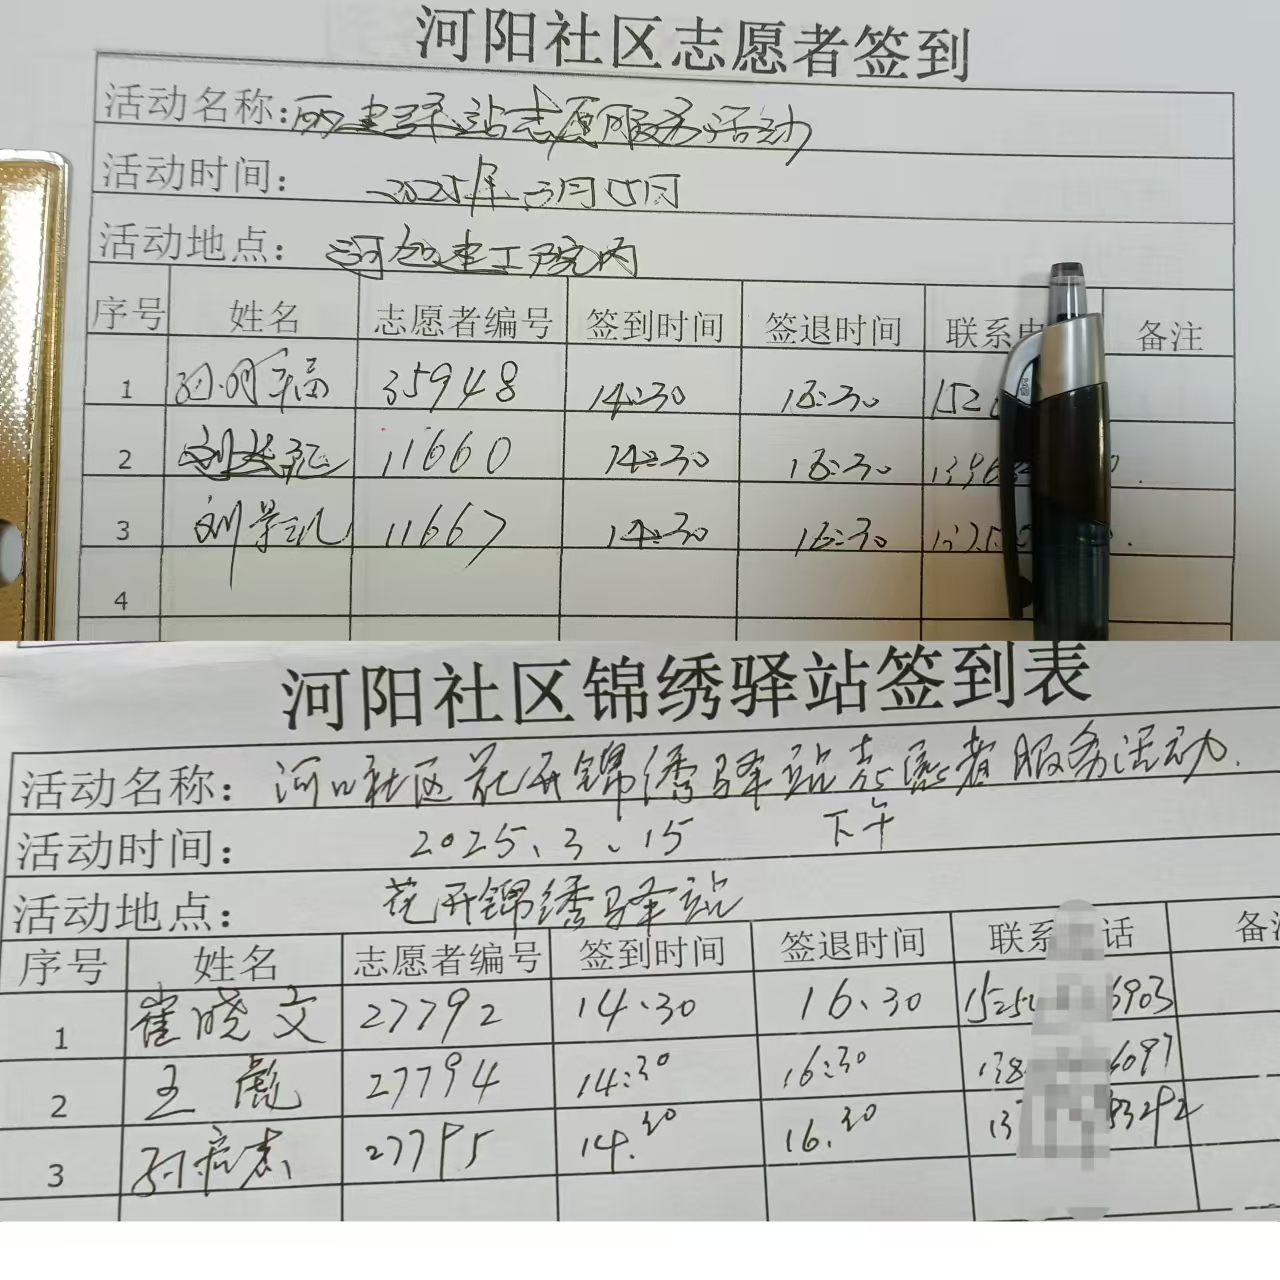 河阳社区志愿者签到
活动名称: 驿站志愿服务活动
活动时间: 2025年3月15日
活动地点: 建工院内
序号 姓名 志愿者编号 签到时间 签退时间 联系 备注
1 35948 14:30 16:30 152
2 刘 11660 14:30 16:30 1396
3 刘景 11667 14:30 16:30
4
河阳社区锦绣驿站签到表
活动名称: 河阳社区花开锦绣驿站志愿者服务活动.
活动时间: 2025、3、15 下午
活动地点: 花开锦绣驿站
序号 姓名 志愿者编号 签到时间 签退时间 联系 话 备注
1 崔晓文 27792 14、30 16、30 1525 6903
2 王彪 27794 14:30 16:30 138 6097
3 孙 志 27795 14.30 16.30 13 83292